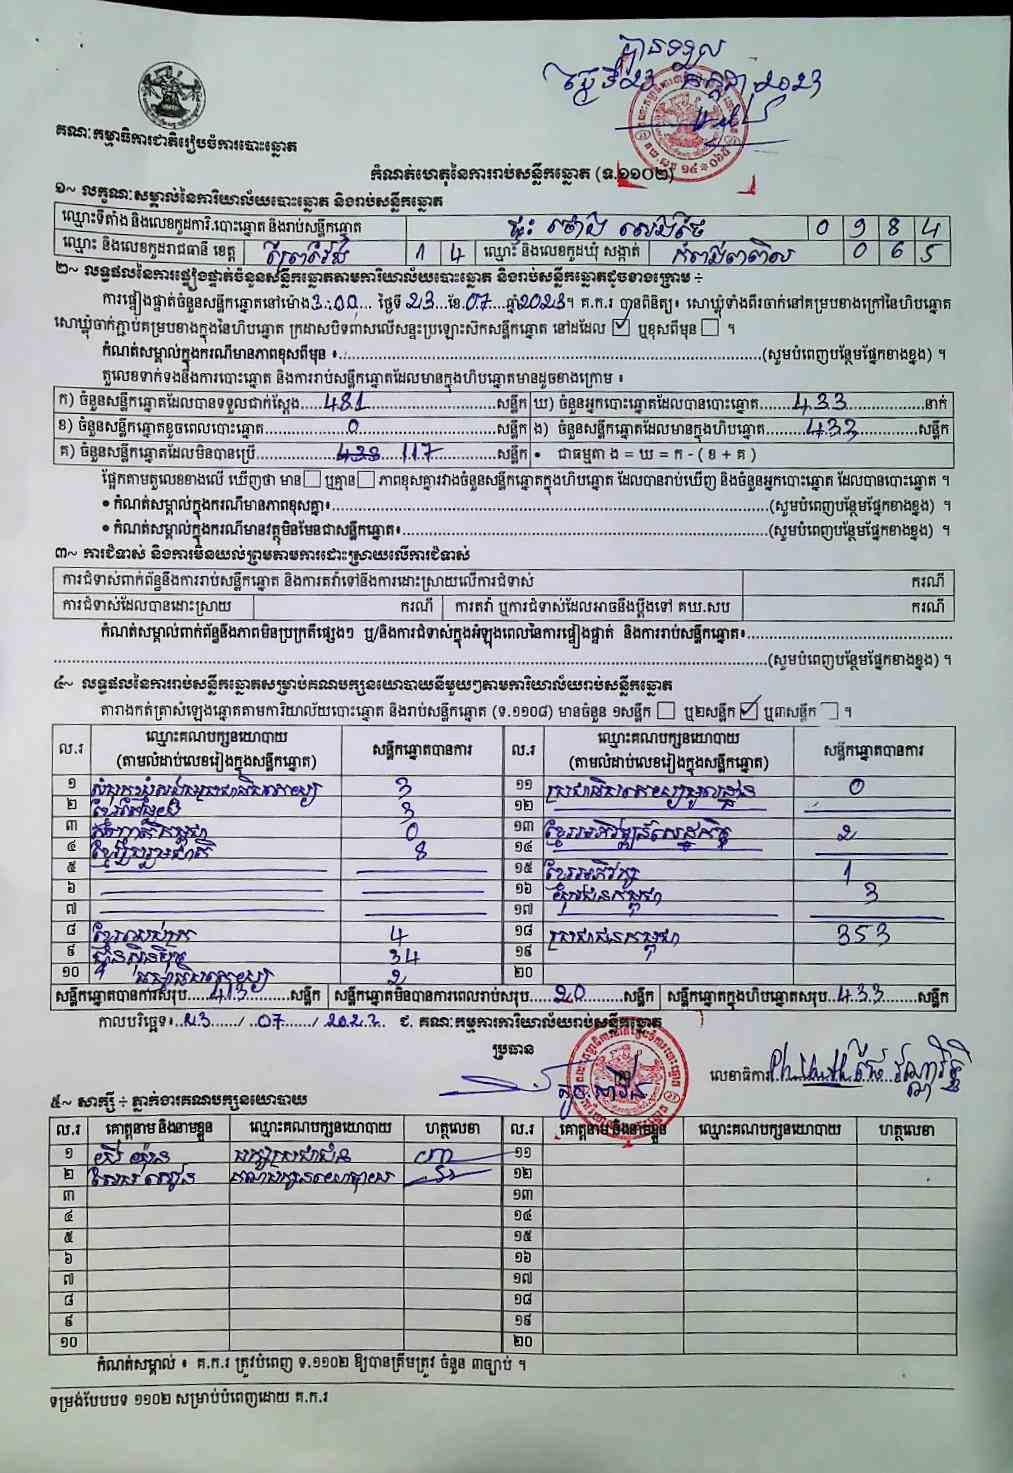 បានទទួល
ថ្ងៃទី23 កក្កដា 2023
គណៈកម្មាធិការជាតិរៀបចំការបោះឆ្នោត
កំណត់ហេតុនៃការរាប់សន្លឹកឆ្នោត (ទ.១១០២)
១~ លក្ខណៈសម្គាល់នៃការិយាល័យបោះឆ្នោត និងរាប់សន្លឹកឆ្នោត
ឈ្មោះទីតាំង និងលេខកូដការិ.បោះឆ្នោត និងរាប់សន្លឹកឆ្នោត 0 9 8 4
ឈ្មោះ និងលេខកូដរាជធានី ខេត្ត ព្រៃវែង 1 4 ឈ្មោះ និងលេខកូដឃុំ សង្កាត់ 0 6 5
២~ លទ្ធផលនៃការផ្ទៀងផ្ទាត់ចំនួនសន្លឹកឆ្នោតតាមការិយាល័យបោះឆ្នោត និងរាប់សន្លឹកឆ្នោតដូចខាងក្រោម ÷
ការផ្ទៀងផ្ទាត់ចំនួនសន្លឹកឆ្នោតនៅម៉ោង 3:00 ថ្ងៃទី 23 ខែ 07 ឆ្នាំ 2023។ គ.ក.រ បានពិនិត្យ៖ សោឃ្លុំទាំងពីរចាក់នៅគម្របខាងក្រៅនៃហិបឆ្នោត
សោឃ្លុំចាក់ភ្ជាប់គម្របខាងក្នុងនៃហិបឆ្នោត ក្រដាសបិទពាសលើសន្ទះប្រឡោះសឹកសន្លឹកឆ្នោត នៅដដែល ☑ ឬខុសពីមុន ☐ ។
កំណត់សម្គាល់ក្នុងករណីមានភាពខុសពីមុន ៖ (សូមបំពេញបន្ថែមផ្នែកខាងខ្នង) ។
តួលេខទាក់ទងនឹងការបោះឆ្នោត និងការរាប់សន្លឹកឆ្នោតដែលមានក្នុងហិបឆ្នោតមានដូចខាងក្រោម ៖
ក) ចំនួនសន្លឹកឆ្នោតដែលបានទទួលជាក់ស្តែង 481 សន្លឹក ឃ) ចំនួនអ្នកបោះឆ្នោតដែលបានបោះឆ្នោត 433 នាក់
ខ) ចំនួនសន្លឹកឆ្នោតខូចពេលបោះឆ្នោត 0 សន្លឹក ង) ចំនួនសន្លឹកឆ្នោតដែលមានក្នុងហិបឆ្នោត 433 សន្លឹក
គ) ចំនួនសន្លឹកឆ្នោតដែលមិនបានប្រើ 433 117 សន្លឹក • ជាធម្មតា ង = ឃ = ក - ( ខ + គ )
ផ្អែកតាមតួលេខខាងលើ ឃើញថា មាន ☐ ឬគ្មាន ☐ ភាពខុសគ្នារវាងចំនួនសន្លឹកឆ្នោតក្នុងហិបឆ្នោត ដែលបានរាប់ឃើញ និងចំនួនអ្នកបោះឆ្នោត ដែលបានបោះឆ្នោត ។
• កំណត់សម្គាល់ក្នុងករណីមានភាពខុសគ្នា៖ (សូមបំពេញបន្ថែមផ្នែកខាងខ្នង) ។
• កំណត់សម្គាល់ក្នុងករណីមានវត្ថុមិនមែនជាសន្លឹកឆ្នោត៖ (សូមបំពេញបន្ថែមផ្នែកខាងខ្នង) ។
៣~ ការជំទាស់ និងការមិនយល់ព្រមតាមការដោះស្រាយលើការជំទាស់
ការជំទាស់ពាក់ព័ន្ធនឹងការរាប់សន្លឹកឆ្នោត និងការតវ៉ាទៅនឹងការដោះស្រាយលើការជំទាស់ ករណី
ការជំទាស់ដែលបានដោះស្រាយ ករណី ការតវ៉ា ឬការជំទាស់ដែលអាចនឹងប្តឹងទៅ គឃ.សប ករណី
កំណត់សម្គាល់ពាក់ព័ន្ធនឹងភាពមិនប្រក្រតីផ្សេងៗ ឬ/និងការជំទាស់ក្នុងអំឡុងពេលនៃការផ្ទៀងផ្ទាត់ និងការរាប់សន្លឹកឆ្នោត៖
(សូមបំពេញបន្ថែមផ្នែកខាងខ្នង) ។
៤~ លទ្ធផលនៃការរាប់សន្លឹកឆ្នោតសម្រាប់គណបក្សនយោបាយនីមួយៗតាមការិយាល័យរាប់សន្លឹកឆ្នោត
តារាងកត់ត្រាសំឡេងឆ្នោតតាមការិយាល័យបោះឆ្នោត និងរាប់សន្លឹកឆ្នោត (ទ.១១០៨) មានចំនួន ១សន្លឹក ☐ ឬ២សន្លឹក ☑ ឬ៣សន្លឹក ☐ ។
ល.រ ឈ្មោះគណបក្សនយោបាយ (តាមលំដាប់លេខរៀងក្នុងសន្លឹកឆ្នោត) សន្លឹកឆ្នោតបានការ ល.រ ឈ្មោះគណបក្សនយោបាយ (តាមលំដាប់លេខរៀងក្នុងសន្លឹកឆ្នោត) សន្លឹកឆ្នោតបានការ
១ 3 ១១ 0
២ 3 ១២
៣ 0 ១៣ ខ្មែរអភិវឌ្ឍន៍សេដ្ឋកិច្ច 2
៤ ខ្មែររួបរួមជាតិ 8 ១៤
៥ ១៥ ខ្មែរអភិរក្ស 1
៦ ១៦ 3
៧ ១៧
៨ 4 ១៨ ប្រជាជនកម្ពុជា 353
៩ ហ៊្វុនស៊ិនប៉ិច 34 ១៩
១០ 2 ២០
សន្លឹកឆ្នោតបានការសរុប 413 សន្លឹក សន្លឹកឆ្នោតមិនបានការពេលរាប់សរុប 20 សន្លឹក សន្លឹកឆ្នោតក្នុងហិបឆ្នោតសរុប 433 សន្លឹក
កាលបរិច្ឆេទ៖ 23 / 07 / 2023 ជ. គណៈកម្មការការិយាល័យរាប់សន្លឹកឆ្នោត
ប្រធាន
លេខាធិការ
៥~ សាក្សី ÷ ភ្នាក់ងារគណបក្សនយោបាយ
ល.រ គោត្តនាម និងនាមខ្លួន ឈ្មោះគណបក្សនយោបាយ ហត្ថលេខា ល.រ គោត្តនាម និងនាមខ្លួន ឈ្មោះគណបក្សនយោបាយ ហត្ថលេខា
១ ១១
២ ១២
៣ ១៣
៤ ១៤
៥ ១៥
៦ ១៦
៧ ១៧
៨ ១៨
៩ ១៩
១០ ២០
កំណត់សម្គាល់ ៖ គ.ក.រ ត្រូវបំពេញ ទ.១១០២ ឱ្យបានត្រឹមត្រូវ ចំនួន ៣ច្បាប់ ។
ទម្រង់បែបបទ ១១០២ សម្រាប់បំពេញដោយ គ.ក.រ